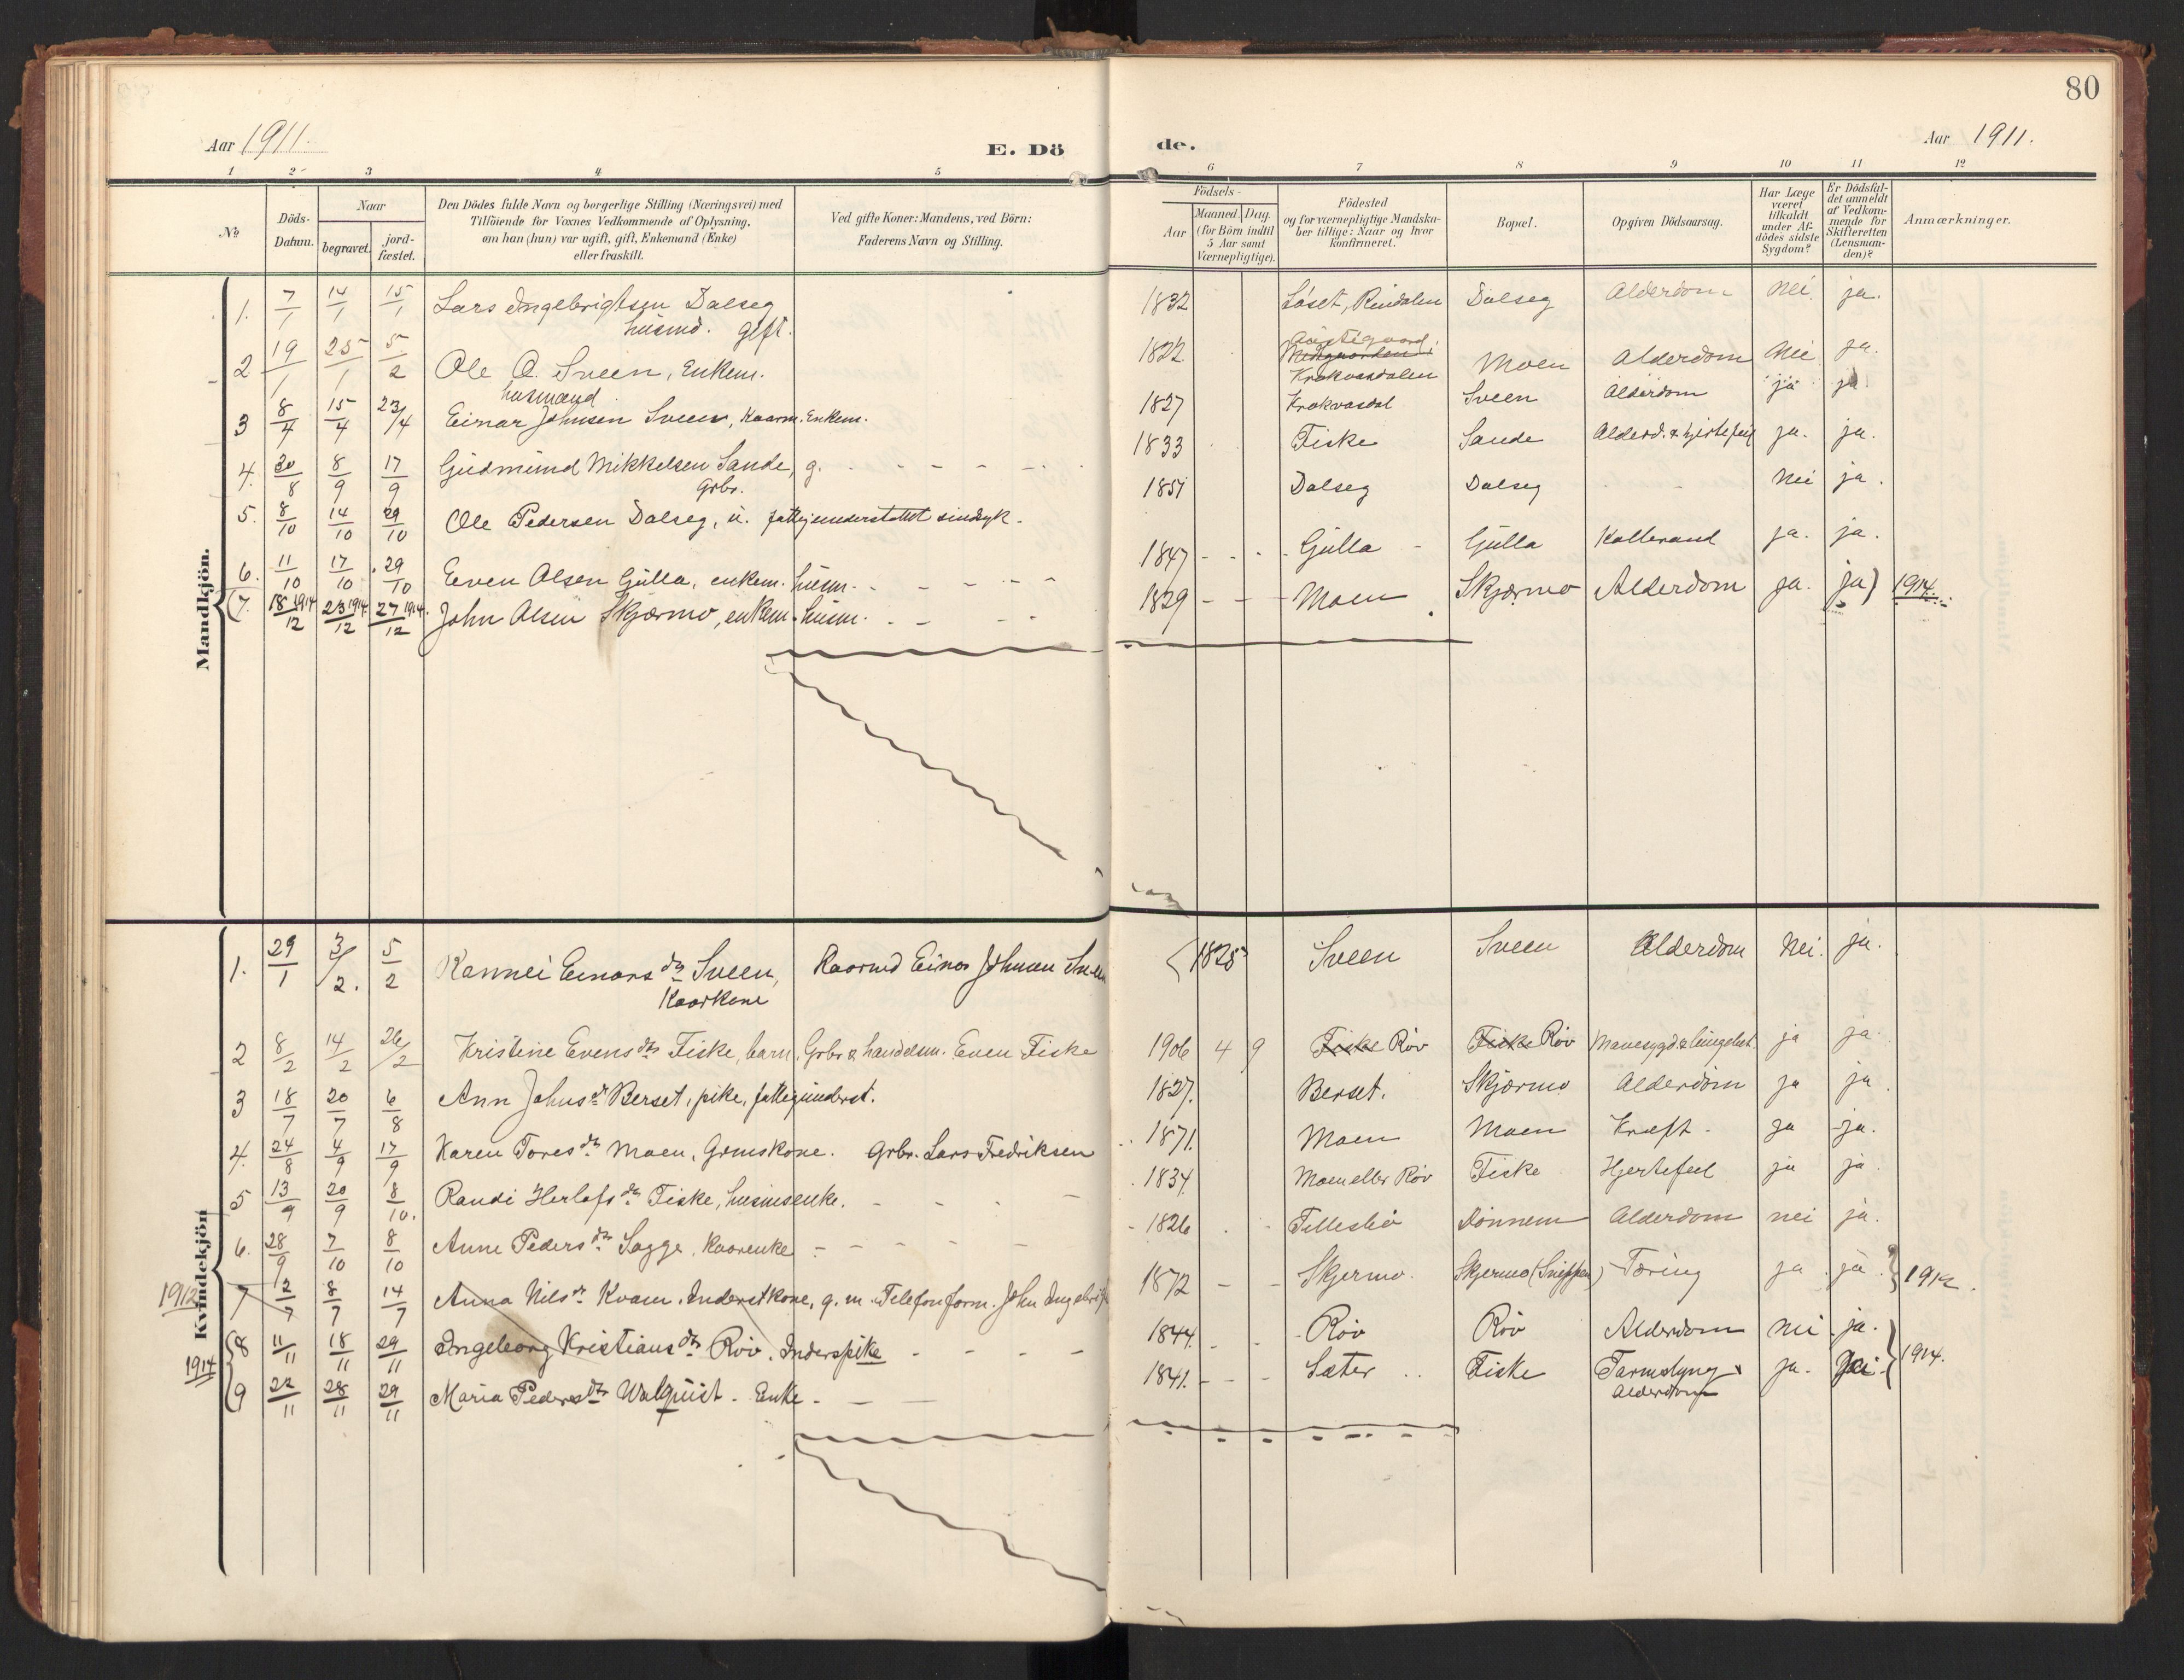 80
Aar 1911.
E. Dö
de.
Aar 1911.
1 2 3 4 5 6 7 8 9 10 11 12
No
Döds-Datum.
Naar
begravet.
jord-fæstet.
Den Dödes fulde Navn og borgerlige Stilling (Næringsvei) med
Tilföiende for Voxnes Vedkommende af Oplysning,
om han (hun) var ugift, gift, Enkemand (Enke)
eller fraskilt.
Ved gifte Koner: Mandens, ved Börn:
Faderens Navn og Stilling.
Födsels-
Aar
Maaned. Dag.
(for Börn indtil
5 Aar samt
Værnepligtige).
Födested
og for værnepligtige Mandska-
ber tillige: Naar og hvor
konfirmeret.
Bopæl.
Opgiven Dödsaarsag.
Har Læge
været
tilkaldt
under Af-
dödes sidste
Sygdom?
Er Dödsfal-
det anmeldt
af Vedkom-
mende for
Skifteretten
(Lensman-
den)?
Anmærkninger.
Mandkjön.
1. 7/1 14/1 15/1 Lars Ingebrigtsen Dalseg 1832 Löset, Rindalen Dalseg Alderdom Nei ja.
husmd. gift.
2 19/1 25/1 5/2 Ole O. Sveen, Enkem. 1822 Krokvasdalen Moen Alderdom Nei ja.
husmand
3 8/4 15/4 23/4 Einar Johnsen Sveen, Kaarm. Enkem. 1827 Krokvasdal Sveen Alderdom ja ja
4. 30/8 8/9 17/9 Gudmund Mikkelsen Sande, g. - - - 1833 Fiske Sande Alderd. & hjertefeil ja. ja.
Grbr.
5. 8/10 14/10 29/10 Ole Pedersen Dalseg, u. fattigunderstöttet sindsyk. 1851 Dalseg Dalseg - - Nei ja.
6. 11/10 17/10 29/10 Even Olsen Gulla, enkem. husm. - - - 1847 - - - Gulla - Gulla Kolbrand ja. ja.
(7. 18/12 1914 23/12 1914 27/12 1914. John Olsen Skjærmo, enkem. husm. - - 1829 - - - Moen Skjærmo Alderdom ja. ja) 1914.
Kvindekjön
1. 29/1 3/2. 5/2 Rannei Einars dtr Sveen, Kaarmd Einar Johnsen Sveen 1828 Sveen Sveen Alderdom Nei. ja.
Kaarkone
2 8/2 14/2 26/2 Kristine Evens dtr Fiske, barn, Grbr & handelsm. Even Fiske 1906 4 9 Fiske Röv Fiske Röv Mavesygd. & lungebet. ja ja.
3 18/7 20/7 6/8 Ann Johns dr Berset, pike, fattigunderst. 1827. Berset. Skjærmo Alderdom ja ja.
4. 24/8 4/9 17/9 Karen Tores dtr Moen, Grmskone. Grbr. Lars Fredriksen 1871. Moen Moen Kræft. ja ja.
5 13/9 20/9 8/10. Randi Herlofs dtr Fiske, husmsenke. - - - 1834. Moen eller Röv Fiske Hjertefeil ja ja.
6. 28/9 7/10 8/10 Anne Peders dtr Sagge, Kaarenke - - - - 1826 Tellesbö Dönnem Alderdom nei ja.
1912 7 2/7 8/7 14/7 Anna Nils dr Kvam. Inderstkone, g. m. Telefonform. John Ingebrigt 1872 - - Skjermo. Skjermo (Snippen) Tæring ja ja. 1912.
1914 8 11/11 18/11 29/11 Ingeborg Kristians dtr Röv. Inderspike - - - - 1844. - - Röv Röv Alderdom Nei ja.
9 22/11 28/11 29/11 Maria Peders dtr Walquist - Enke - - - 1841. - - - Sæter Fiske Tarmslyng & ja. ja. 1914.
Alderdom